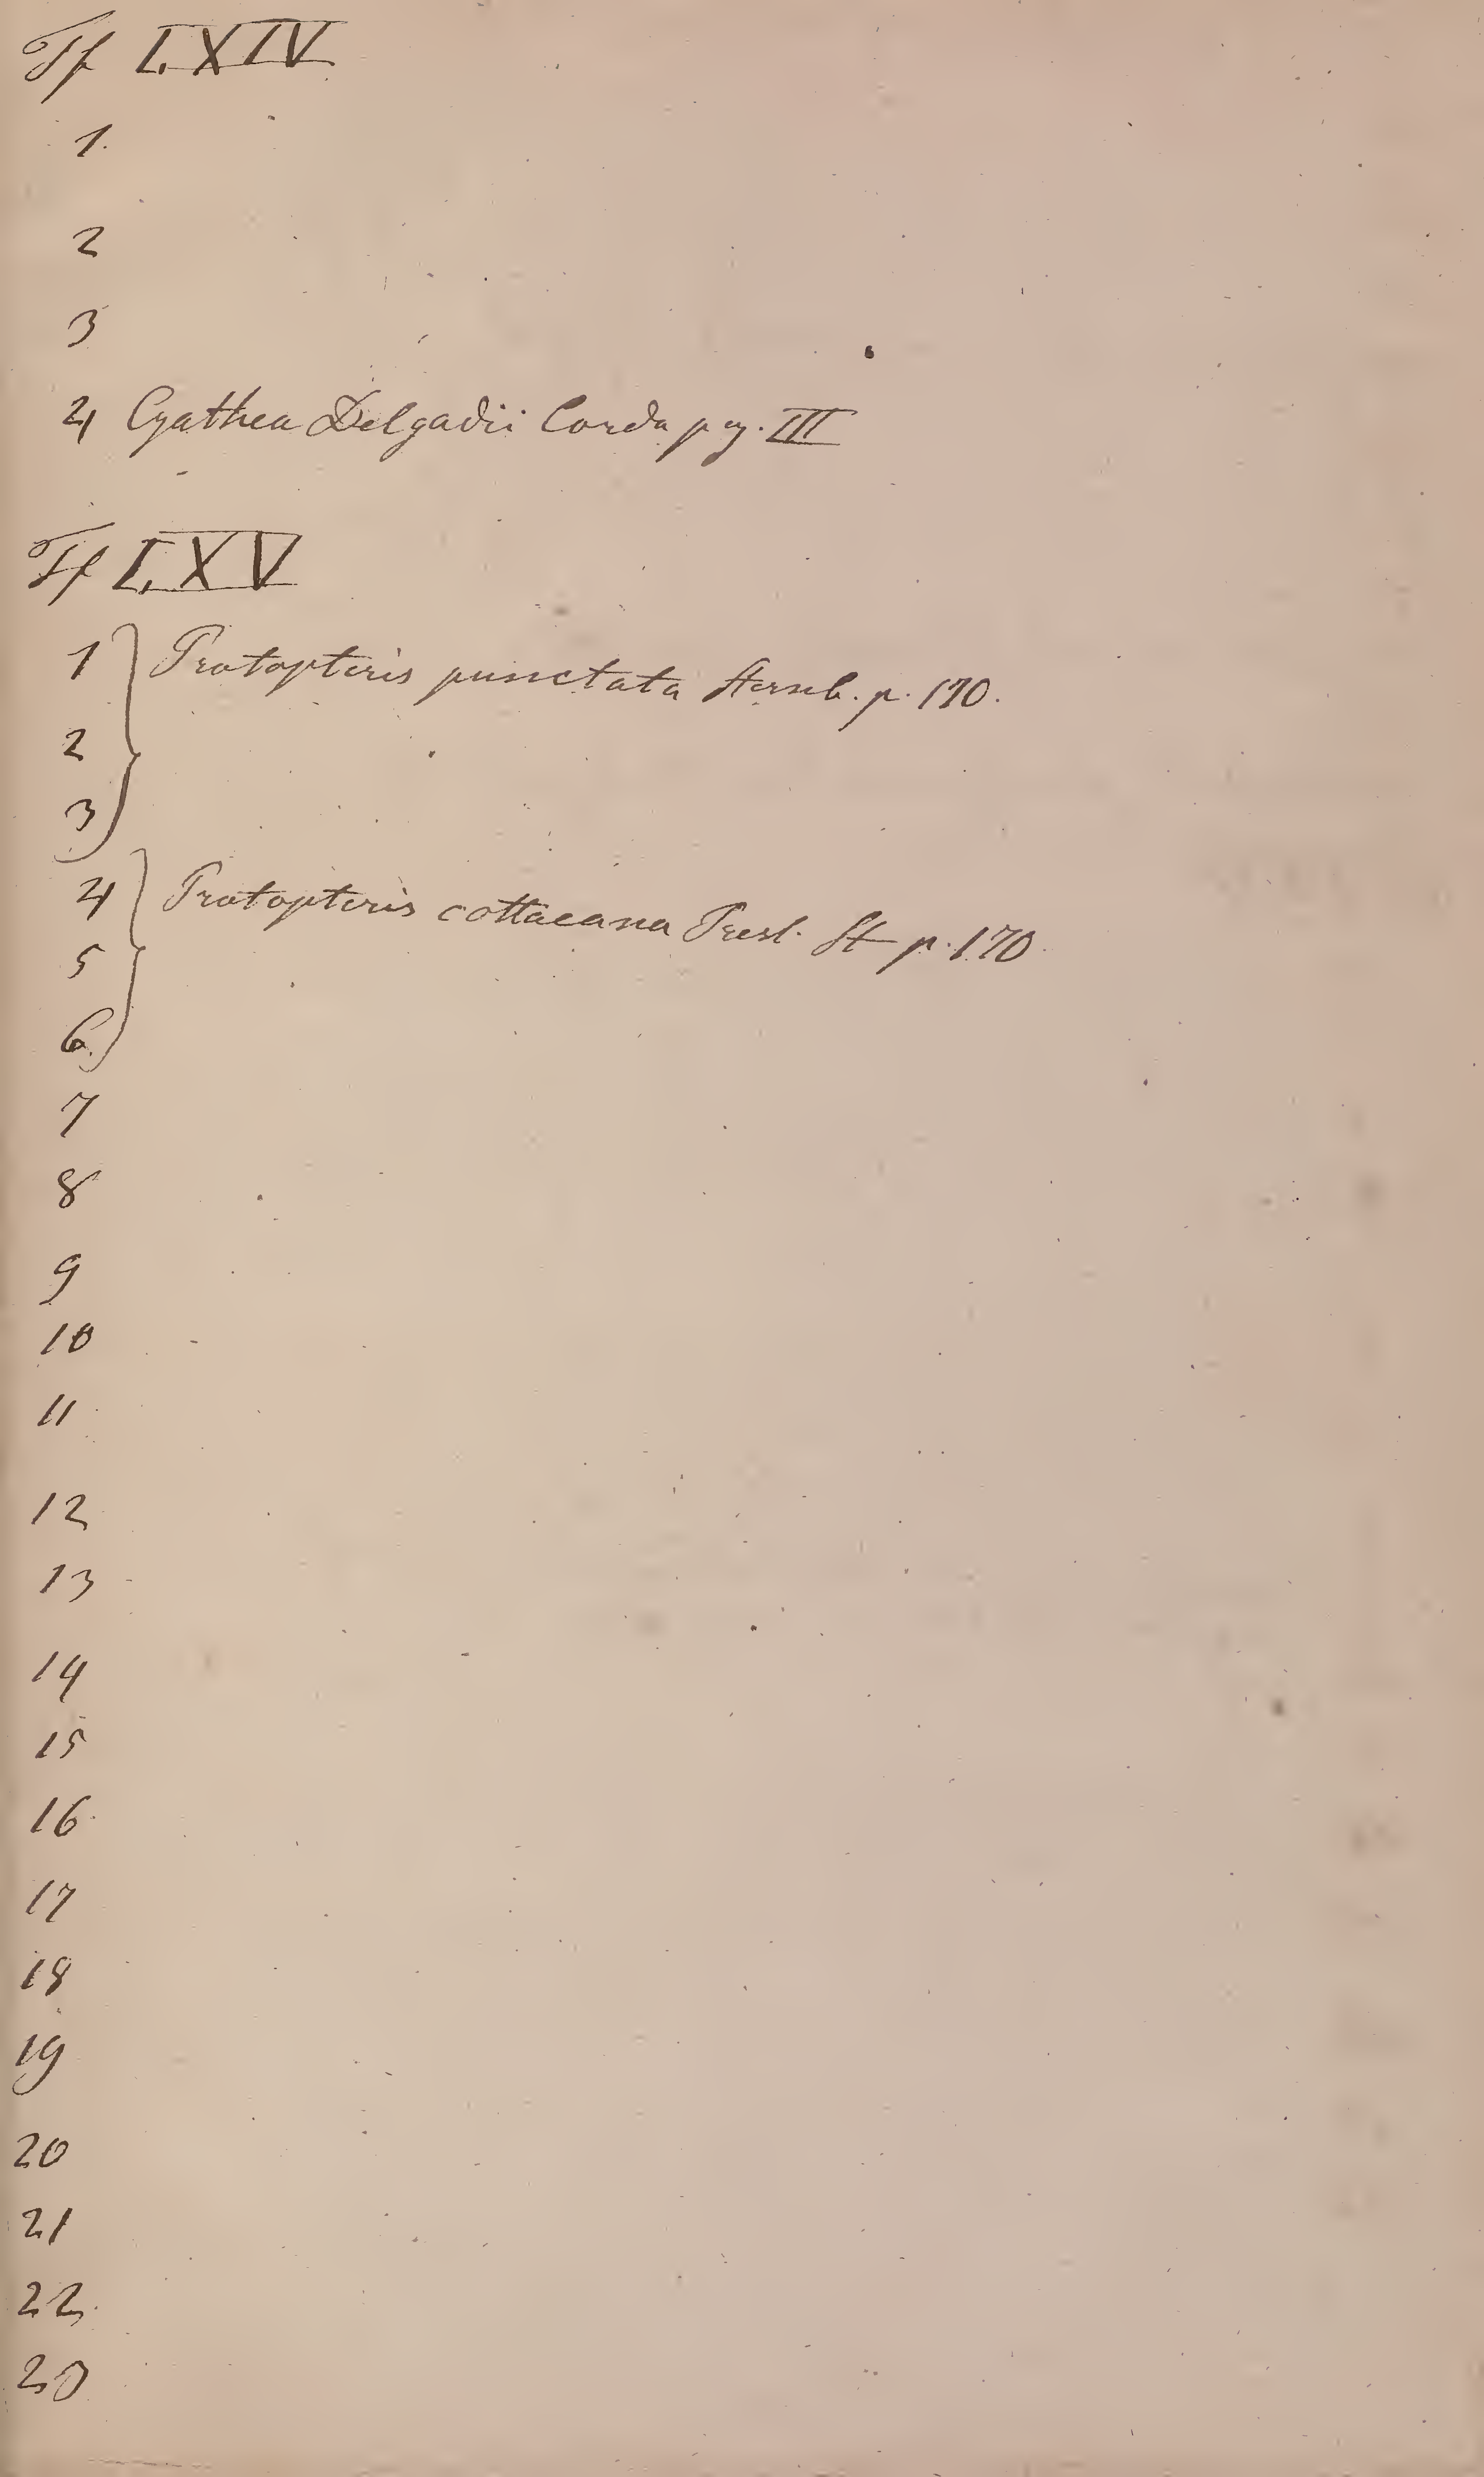 Tf LXIV
1.
2
3
4 Cyathea Delgadii Corda pg. III
Tf LXV
1 Protopteris punctata Sternb. p. 170.
2
3
4 Protopteris cottaeana Presl. St p. 170
5
6.
7
8
9
10
11
12
13
14
15
16.
17
18
19
20
21
22.
20